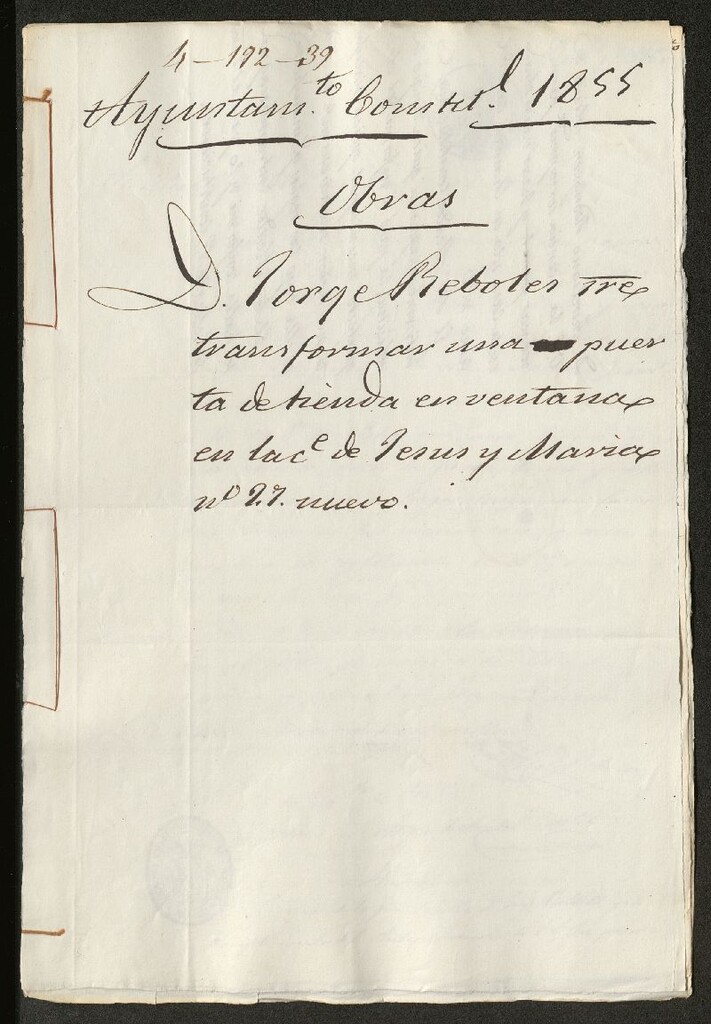 4-192-39
Ayuntam.to Constit.l 1855
Obras
D. Jorge Reboles
transformar una puer
ta de tienda en ventana
en la c.e de Jesus y Maria
nº 27. nuevo.